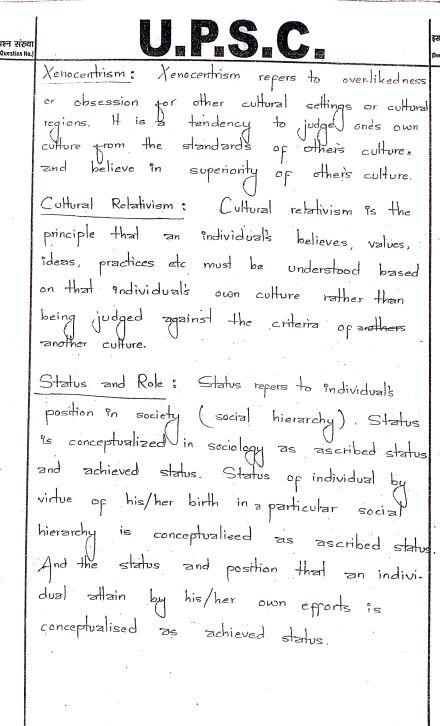 U.P.S.C.
प्रश्न संख्या
Question No.)
Xenocentrism : Xenocentrism refers to over likedness
or obsession for other cultural settings or cultural
regions. It is a tendency to judge one's own
culture from the standards of other's culture.
and believe in superiority of other's culture.
Cultural Relativism : Cultural relativism is the
principle that an individual's believes, values,
ideas, practices etc must be understood based
on that individual's own culture rather than
being judged against the criteria of anothers
another culture.
Status and Role : Status refers to individual's
position in society (social hierarchy). Status
is conceptualized in sociology as ascribed status
and achieved status. Status of individual by
virtue of his/her birth in a particular social
hierarchy is conceptualised as ascribed status.
And the status and position that an indivi-
dual attain by his/her own efforts is
conceptualised as achieved status.